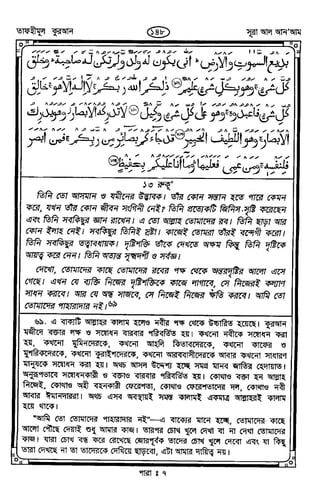 তাফহীমুল কুরআন
১৪৮
সূরা আল আন'আম
بَدِيعُ السَّمٰوٰتِ وَالْاَرْضِ ؕ اَنّٰى يَكُوْنُ لَهٗ وَلَدٌ وَّلَمْ تَكُنْ لَّهٗ صَاحِبَةٌ ؕ وَخَلَقَ
كُلَّ شَيْءٍ ۚ وَهُوَ بِكُلِّ شَيْءٍ عَلِيْمٌ ۝ ذٰلِكُمُ اللّٰهُ رَبُّكُمْ ۚ لَآ اِلٰهَ اِلَّا هُوَ ۚ خَالِقُ
كُلِّ شَيْءٍ فَاعْبُدُوْهُ ۚ وَهُوَ عَلٰى كُلِّ شَيْءٍ وَّكِيْلٌ ۝ لَا تُدْرِكُهُ الْاَبْصَارُ ۫ وَهُوَ يُدْرِكُ
الْاَبْصَارَ ۚ وَهُوَ اللَّطِيْفُ الْخَبِيْرُ ۝ قَدْ جَآءَكُمْ بَصَآئِرُ مِنْ رَّبِّكُمْ ۚ فَمَنْ اَبْصَرَ
فَلِنَفْسِهٖ ۚ وَمَنْ عَمِيَ فَعَلَيْهَا ؕ وَمَآ اَنَا عَلَيْكُمْ بِحَفِيْظٍ ۝
১৩ রুকূ'
তিনি তো আসমান ও যমীনের উদ্ভাবক। তাঁর কোন সন্তান হতে পারে কেমন
করে, যখন তাঁর কোন জীবন সংগিনী নেই? তিনি প্রত্যেকটি জিনিস সৃষ্টি করেছেন
এবং তিনি সবকিছুর জ্ঞান রাখেন। এ তো আল্লাহ তোমাদের রব। তিনি ছাড়া আর
কোন ইলাহ নেই। সবকিছুর তিনিই স্রষ্টা। কাজেই তোমরা তাঁরই বন্দেগী করো।
তিনি সবকিছুর তত্ত্বাবধায়ক। দৃষ্টিশক্তি তাঁকে দেখতে অক্ষম কিন্তু তিনি দৃষ্টিকে
আয়ত্ব করে নেন। তিনি অত্যন্ত সূক্ষ্মদর্শী ও সর্বজ্ঞ।
দেখো, তোমাদের কাছে তোমাদের রবের পক্ষ থেকে অন্তরদৃষ্টির আলো এসে
গেছে। এখন যে ব্যক্তি নিজের দৃষ্টিশক্তিকে কাজে লাগাবে, সে নিজেরই কল্যাণ
সাধন করবে। আর যে অন্ধ সাজবে, সে নিজেই নিজের ক্ষতি করবে। আমি তো
তোমাদের পাহারাদার নই।৬৯
৬৯. এ বাক্যটি আল্লাহর কালাম হলেও নবীর পক্ষ থেকে উচ্চারিত হয়েছে। কুরআন
মজীদে বক্তার লক্ষ ও সম্বোধন বারবার পরিবর্তিত হয়। কখনো নবীকে সম্বোধন করা
হয়, কখনো মুমিনদেরকে, কখনো আহলি কিতাবদেরকে, কখনো কাফের ও
মুশরিকদেরকে, কখনো কুরাইশদেরকে, কখনো আরববাসীদেরকে আবার কখনো সাধারণ
মানুষকে সম্বোধন করা হয়। অথচ আসল উদ্দেশ্য হচ্ছে সমগ্র মানব জাতির হেদায়াত।
অনুরূপভাবে সম্বোধনকারী ও বক্তাও বারবার পরিবর্তিত হয়। কোথাও বক্তা হন আল্লাহ
নিজেই, কোথাও অহী বহনকারী ফেরেশতা, কোথাও ফেরেশতাদের দল, কোথাও নবী
আবার ঈমানদাররা। অথচ এসব অবস্থায়ই সমস্ত কালামই একমাত্র আল্লাহরই কালাম
হয়ে থাকে।
"আমি তো তোমাদের পাহারাদার নই"—এ বাক্যের মানে হচ্ছে, তোমাদের কাছে
আলো পৌঁছে দেয়াই শুধু আমার কাজ। তারপর চোখ খুলে দেখা বা না দেখা তোমাদের
কাজ। যারা চোখ বন্ধ করে রেখেছে জোরপূর্বক তাদের চোখ খুলে দেবো এবং যা কিছু
তারা দেখছে না তা তাদেরকে দেখিয়ে ছাড়বো, এটা আমার দায়িত্ব নয়।
পারা ঃ ৭